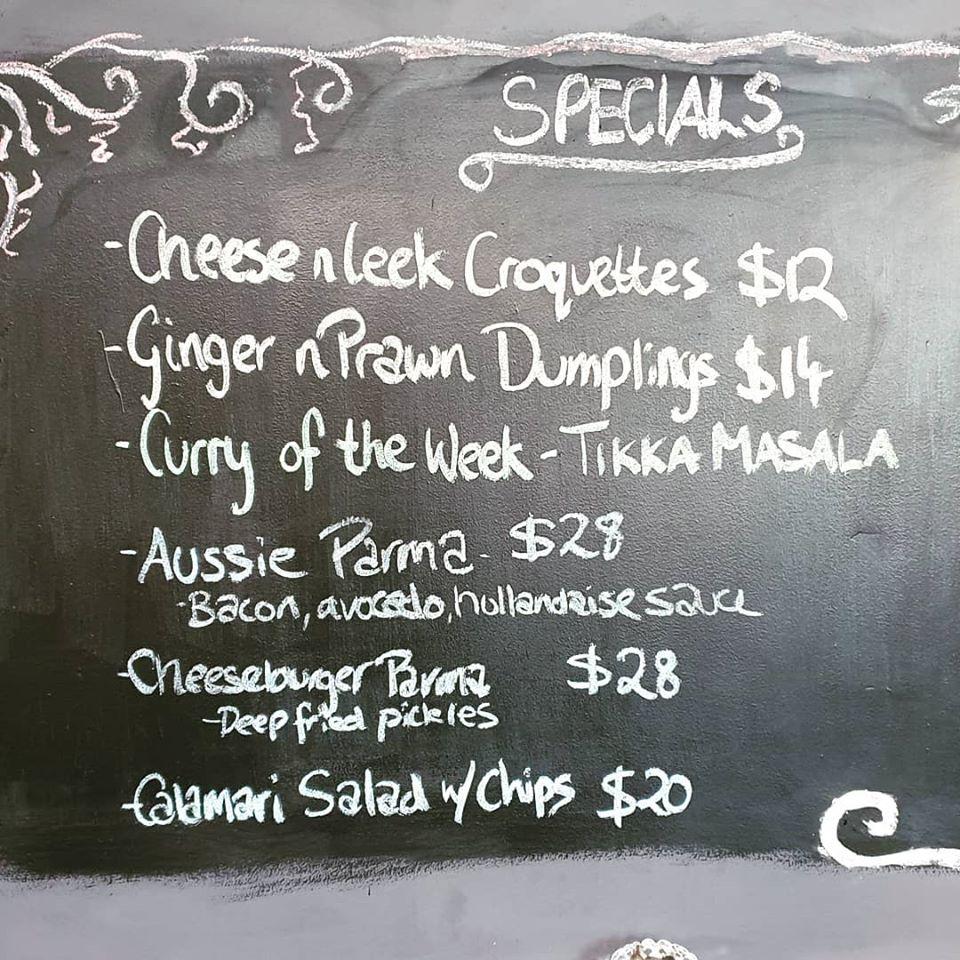 SPECIALS
-Cheese n leek Croquettes $12
-Ginger n Prawn Dumplings $14
-Curry of the Week - TIKKA MASALA
-Aussie Parma - $28
-Bacon, avocado, hollandaise sauce
-Cheeseburger Parma $28
-Deep fried pickles
-Calamari Salad w/Chips $20